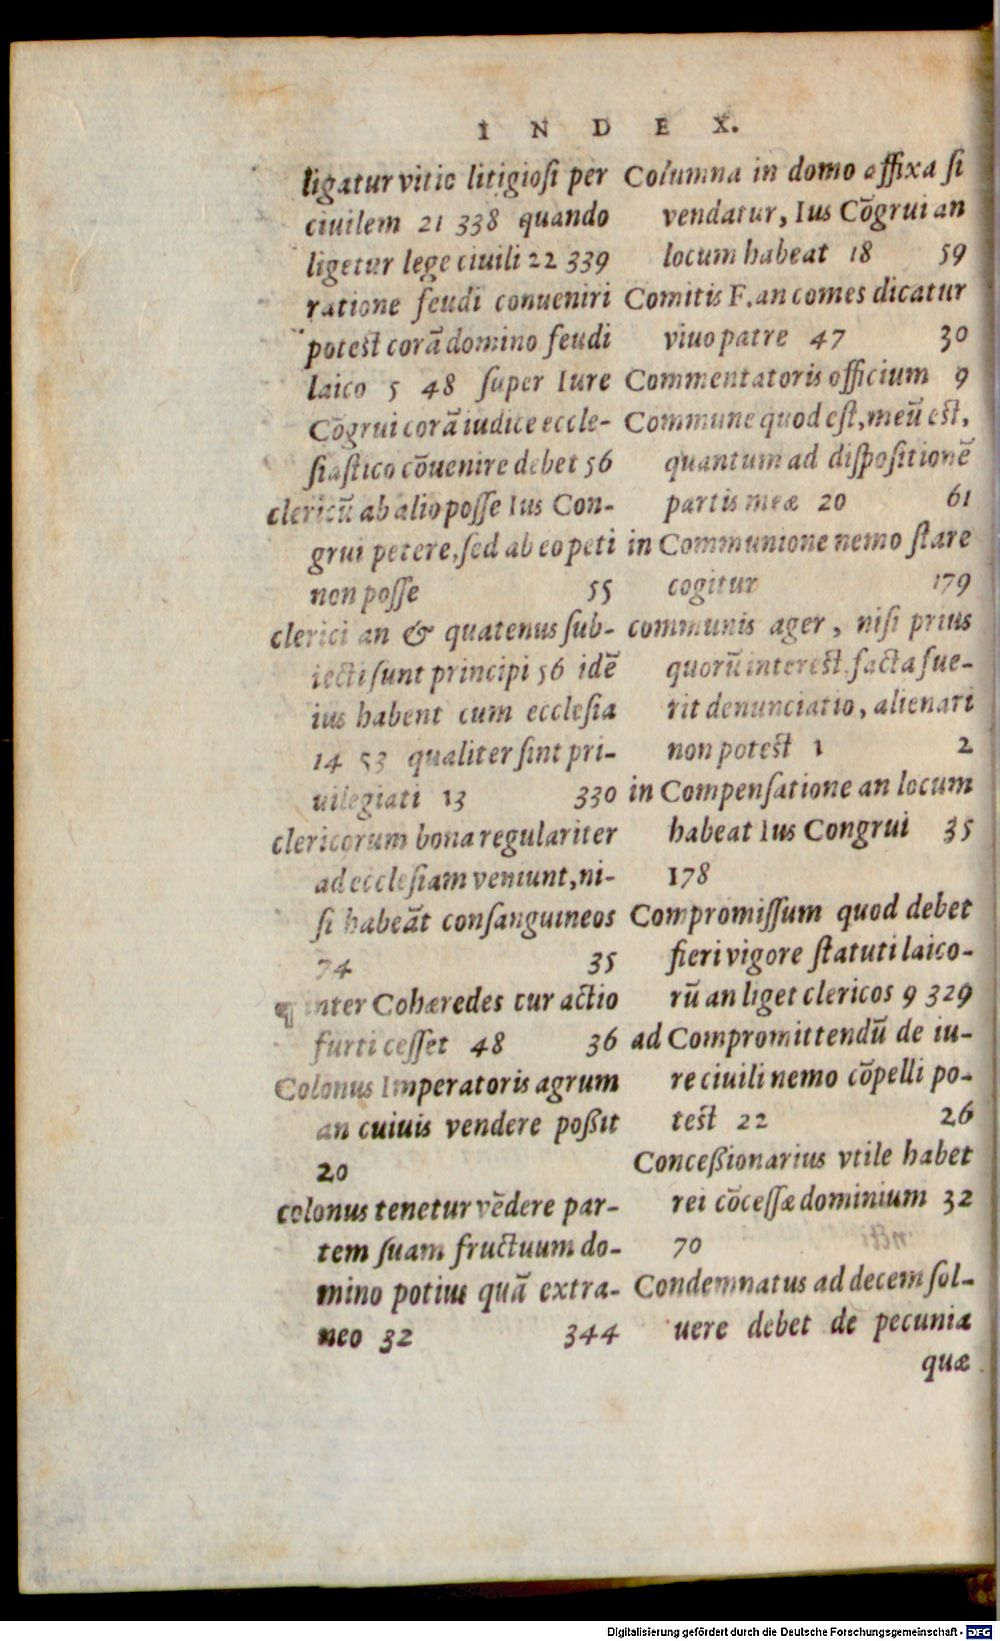 INDEX.
ligatur vitio litigiosi per
ciuilem 21 338 quando
ligetur lege ciuili 22 339
ratione feudi conueniri
potest corā domino feudi
laico 5 48 super Iure
Cōgrui corā iudice eccle-
siastico cōuenire debet 56
clericū ab alio posse Ius Con-
grui petere, sed ab eo peti
non posse 55
clerici an & quatenus sub-
iecti sunt principi 56 idē
ius habent cum ecclesia
14 53 qualiter sint pri-
uilegiati 13 330
clericorum bona regulariter
ad ecclesiam veniunt, ni-
si habeāt consanguineos
74 35
¶ inter Cohæredes cur actio
furti cesset 48 36
Colonus Imperatoris agrum
an cuiuis vendere poßit
20
colonus tenetur vēdere par-
tem suam fructuum do-
mino potius quā extra-
neo 32 344
Columna in domo affixa si
vendatur, Ius Cōgrui an
locum habeat 18 59
Comitis F. an comes dicatur
viuo patre 47 30
Commentatoris officium 9
Commune quod est, meū est,
quantum ad dispositionē
partis meæ 20 61
in Communione nemo stare
cogitur 179
communis ager, nisi prius
quorū interest, facta fue-
rit denunciatio, alienari
non potest 1 2
in Compensatione an locum
habeat Ius Congrui 35
178
Compromissum quod debet
fieri vigore statuti laico-
rū an liget clericos 9 329
ad Compromittendū de iu-
re ciuili nemo cōpelli po-
test 22 26
Conceßionarius vtile habet
rei cōcessæ dominium 32
70
Condemnatus ad decem sol-
uere debet de pecunia
quæ
Digitalisierung gefördert durch die Deutsche Forschungsgemeinschaft - DFG